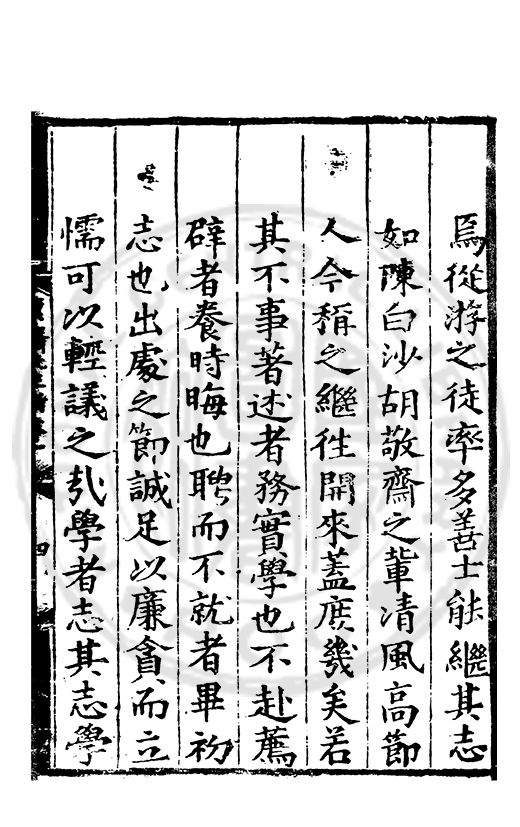 焉從游之徒率多善士能繼其志
如陳白沙胡敬齋之輩凊風高節
人今稱之繼徃開來蓋庶幾矣若
其不事著述者務實學也不赴薦
辟者養時晦也聘而不就者畢初
志也出處之節誠足以廉貪而立
懦可以輕議之㢤學者志其志學
四